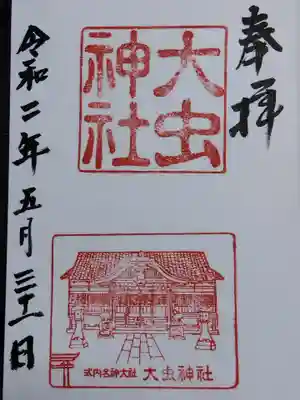 奉拝
大虫
神社
令和二年五月三十一日
式内名神大社 大虫神社